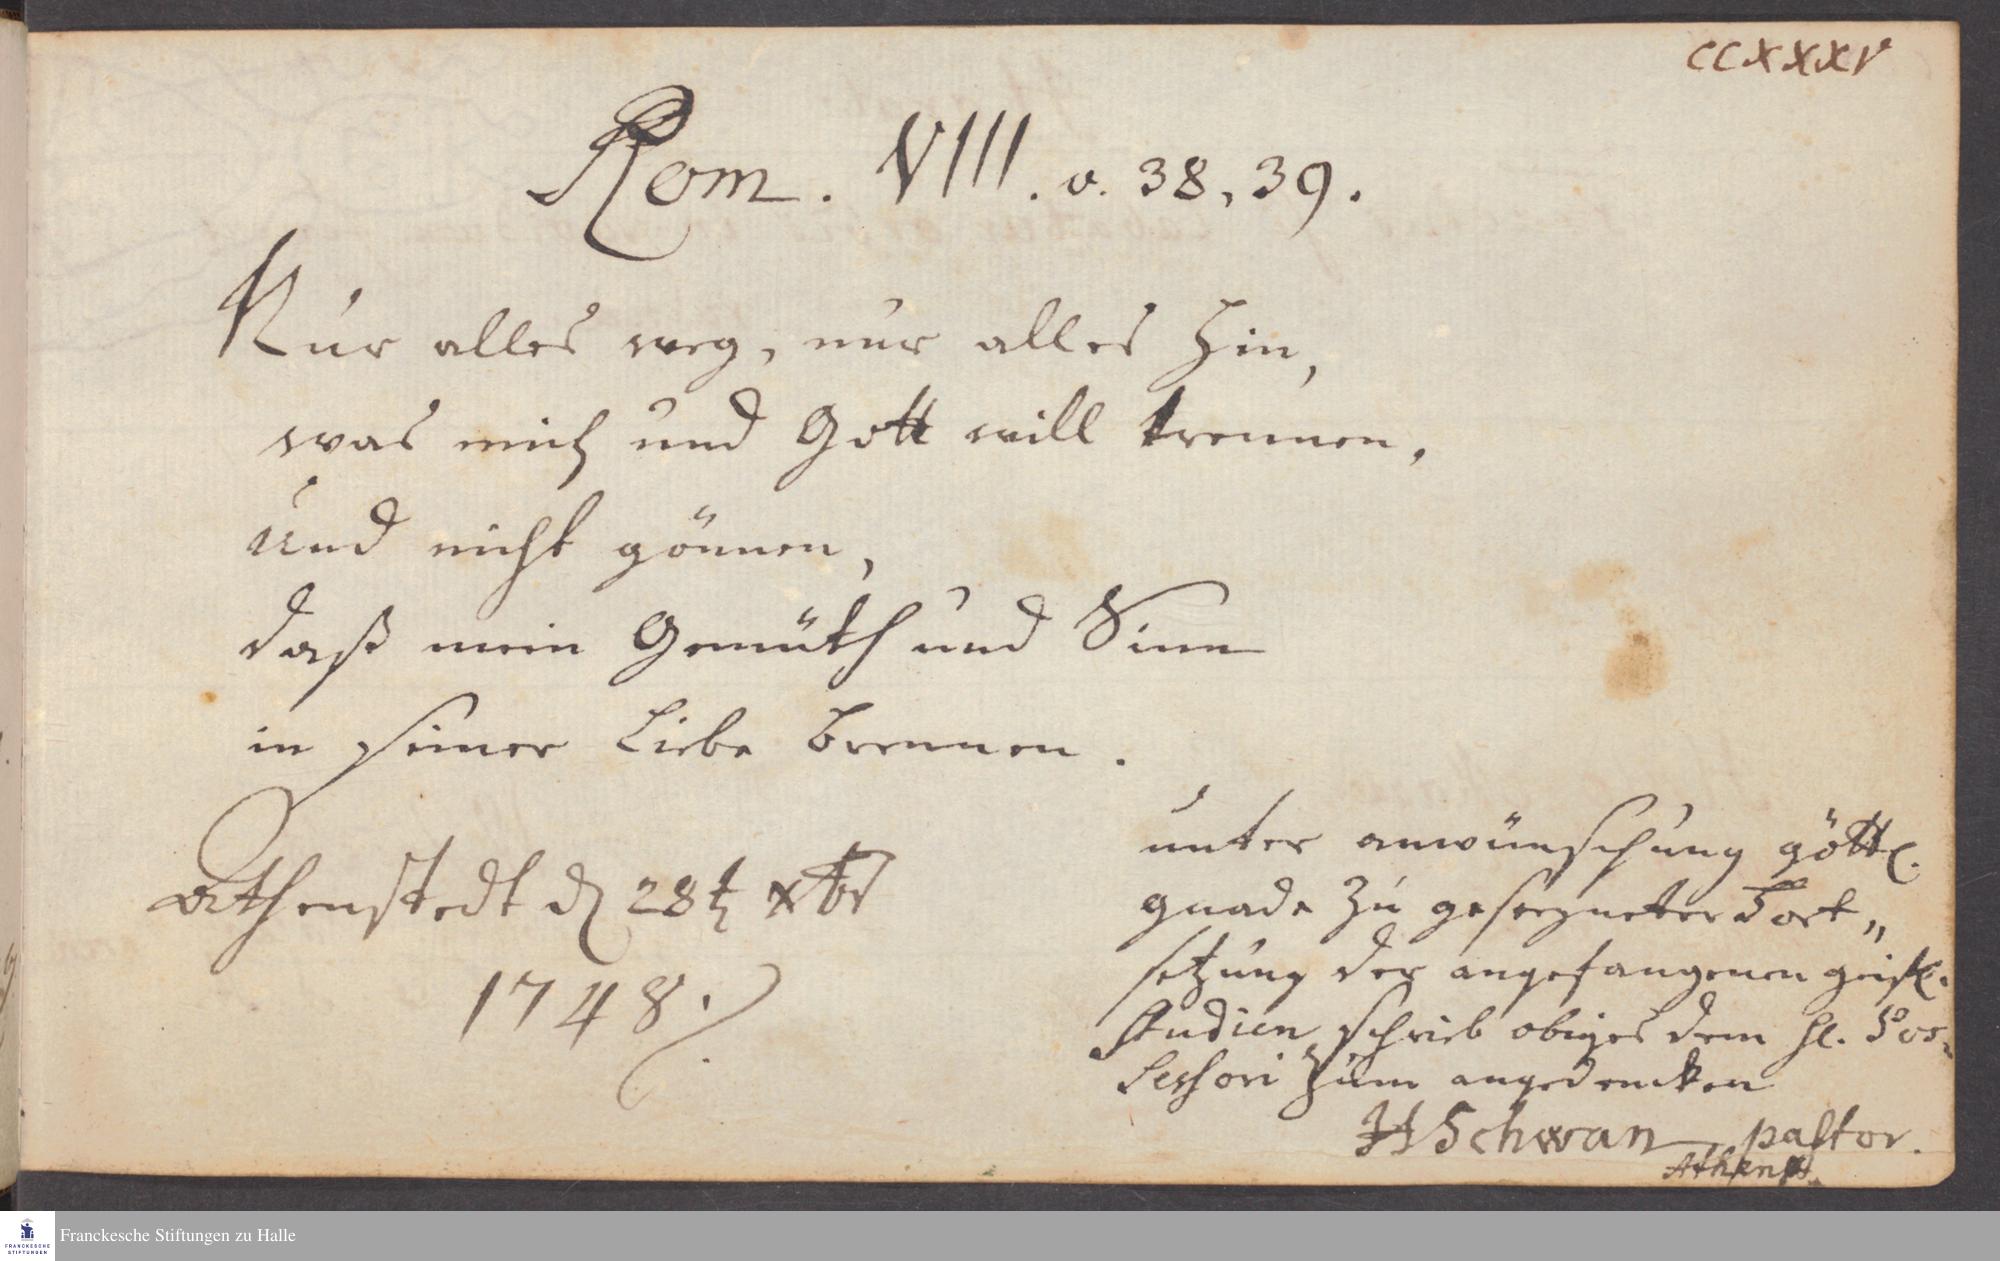 CCXXXV
Rom. VIII. v. 38, 39.
Nur alles weg, nur alles hin,
was mich und Gott will trennen,
und nicht gönnen,
daß mein Gemüth und Sinn
in seiner Liebe brennen.
Athenstedt d 28t Xbr
1748.
unter anwünschung göttl.
gnade zu geseegneter Fort„
setzung der angefangenen geistl.
Studien schrieb obiges dem H. Pos-
sessori zum angedencken
Schwan, pastor.
Athenst.
FRANCKESCHE
STIFTUNGEN
Franckesche Stiftungen zu Halle